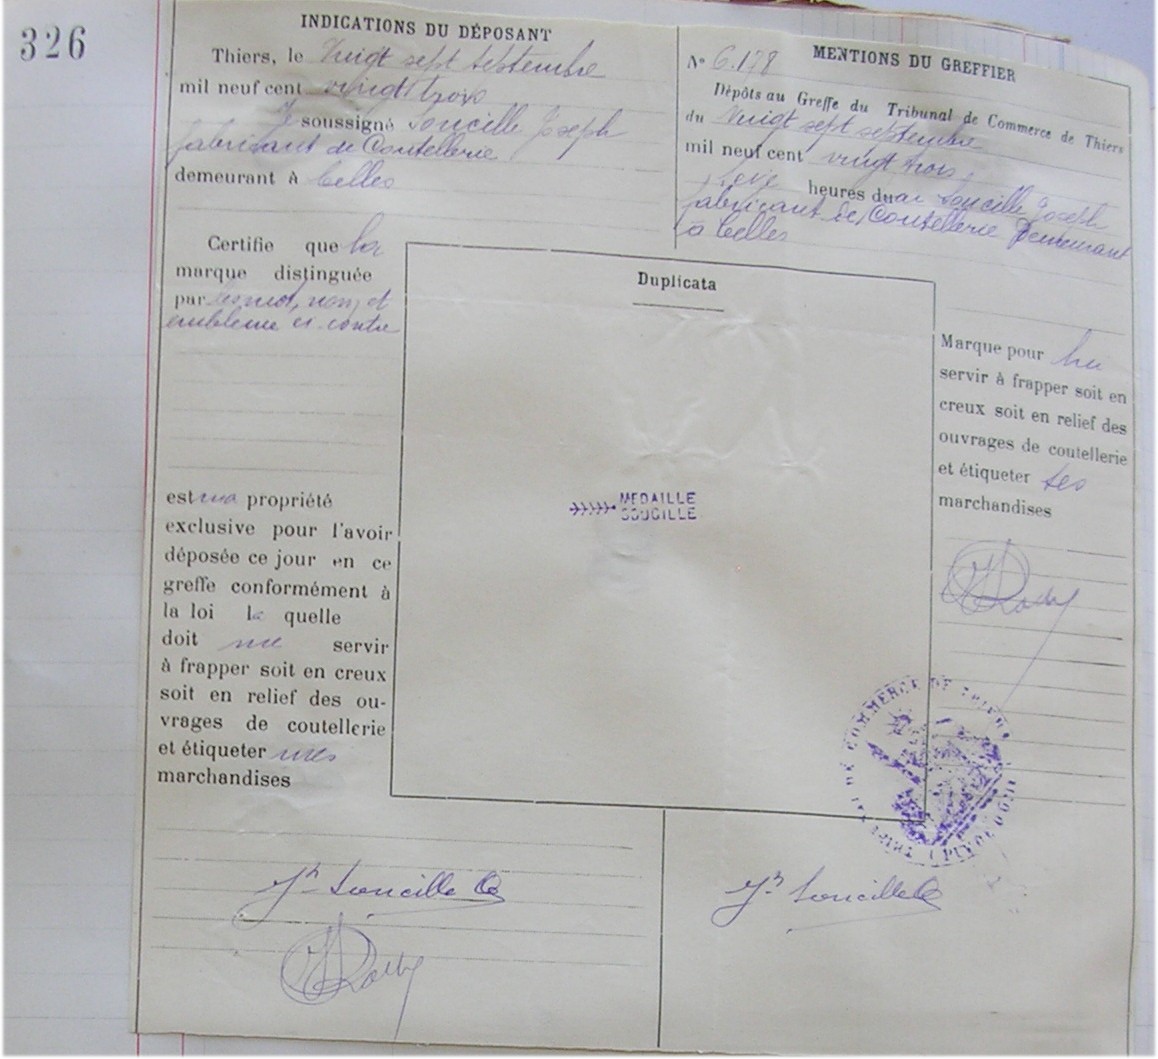 326
INDICATIONS DU DÉPOSANT
Thiers, le Vingt sept Septembre
mil neuf cent vingt trois
Je soussigné Soucille Joseph
fabricant de Coutellerie
demeurant à Celles
Certifie que la
marque distinguée
par les mot, nom, et
emblème ci-contre
est ma propriété
exclusive pour l'avoir
déposée ce jour en ce
greffe conformément à
la loi la quelle
doit me servir
à frapper soit en creux
soit en relief des ou-
vrages de coutellerie
et étiqueter mes
marchandises
MENTIONS DU GREFFIER
N° 6.178
Dépôts au Greffe du Tribunal de Commerce de Thiers
du Vingt sept septembre
mil neuf cent vingt trois,
heures du Soucille Joseph
fabricant de Coutellerie Demeurant
à Celles
Duplicata
MEDAILLE
SOUCILLE
Marque pour lui
servir à frapper soit en
creux soit en relief des
ouvrages de coutellerie
et étiqueter ses
marchandises
DE COMMERCE DE THIERS
(PUY DE DOME)
Jh Soucille
Jh Soucille